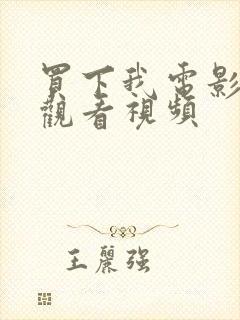 買下我電影
觀看視頻
王麗強